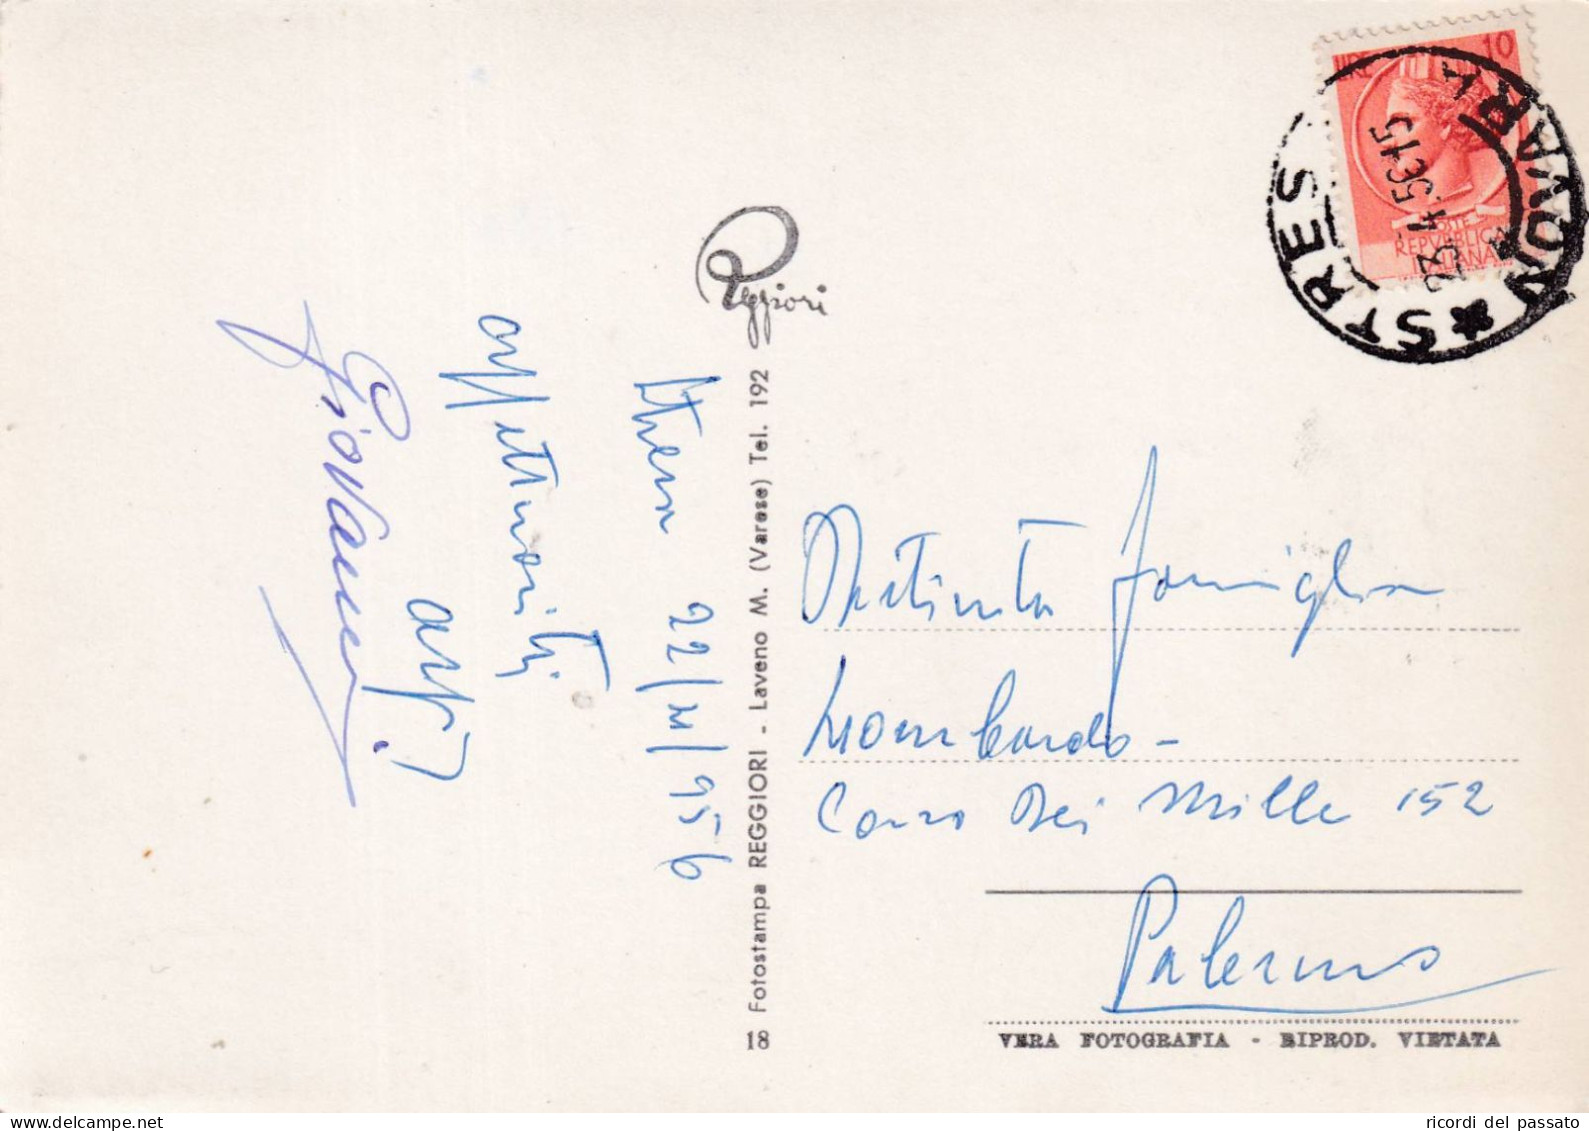 Stresa 22/IV/956
affettuosità
aff.
Giovanni
Reggiori
18 Fotostampa REGGIORI - Laveno M. (Varese) Tel. 192
LIRE 10
POSTE
REPVBBLICA
ITALIANA
STRES
NOVARA
23.4.56 15
Distinta famiglia
Lombardo -
Corso Dei Mille 152
Palermo
VERA FOTOGRAFIA - RIPROD. VIETATA
ricordi del passato
delcampe.net